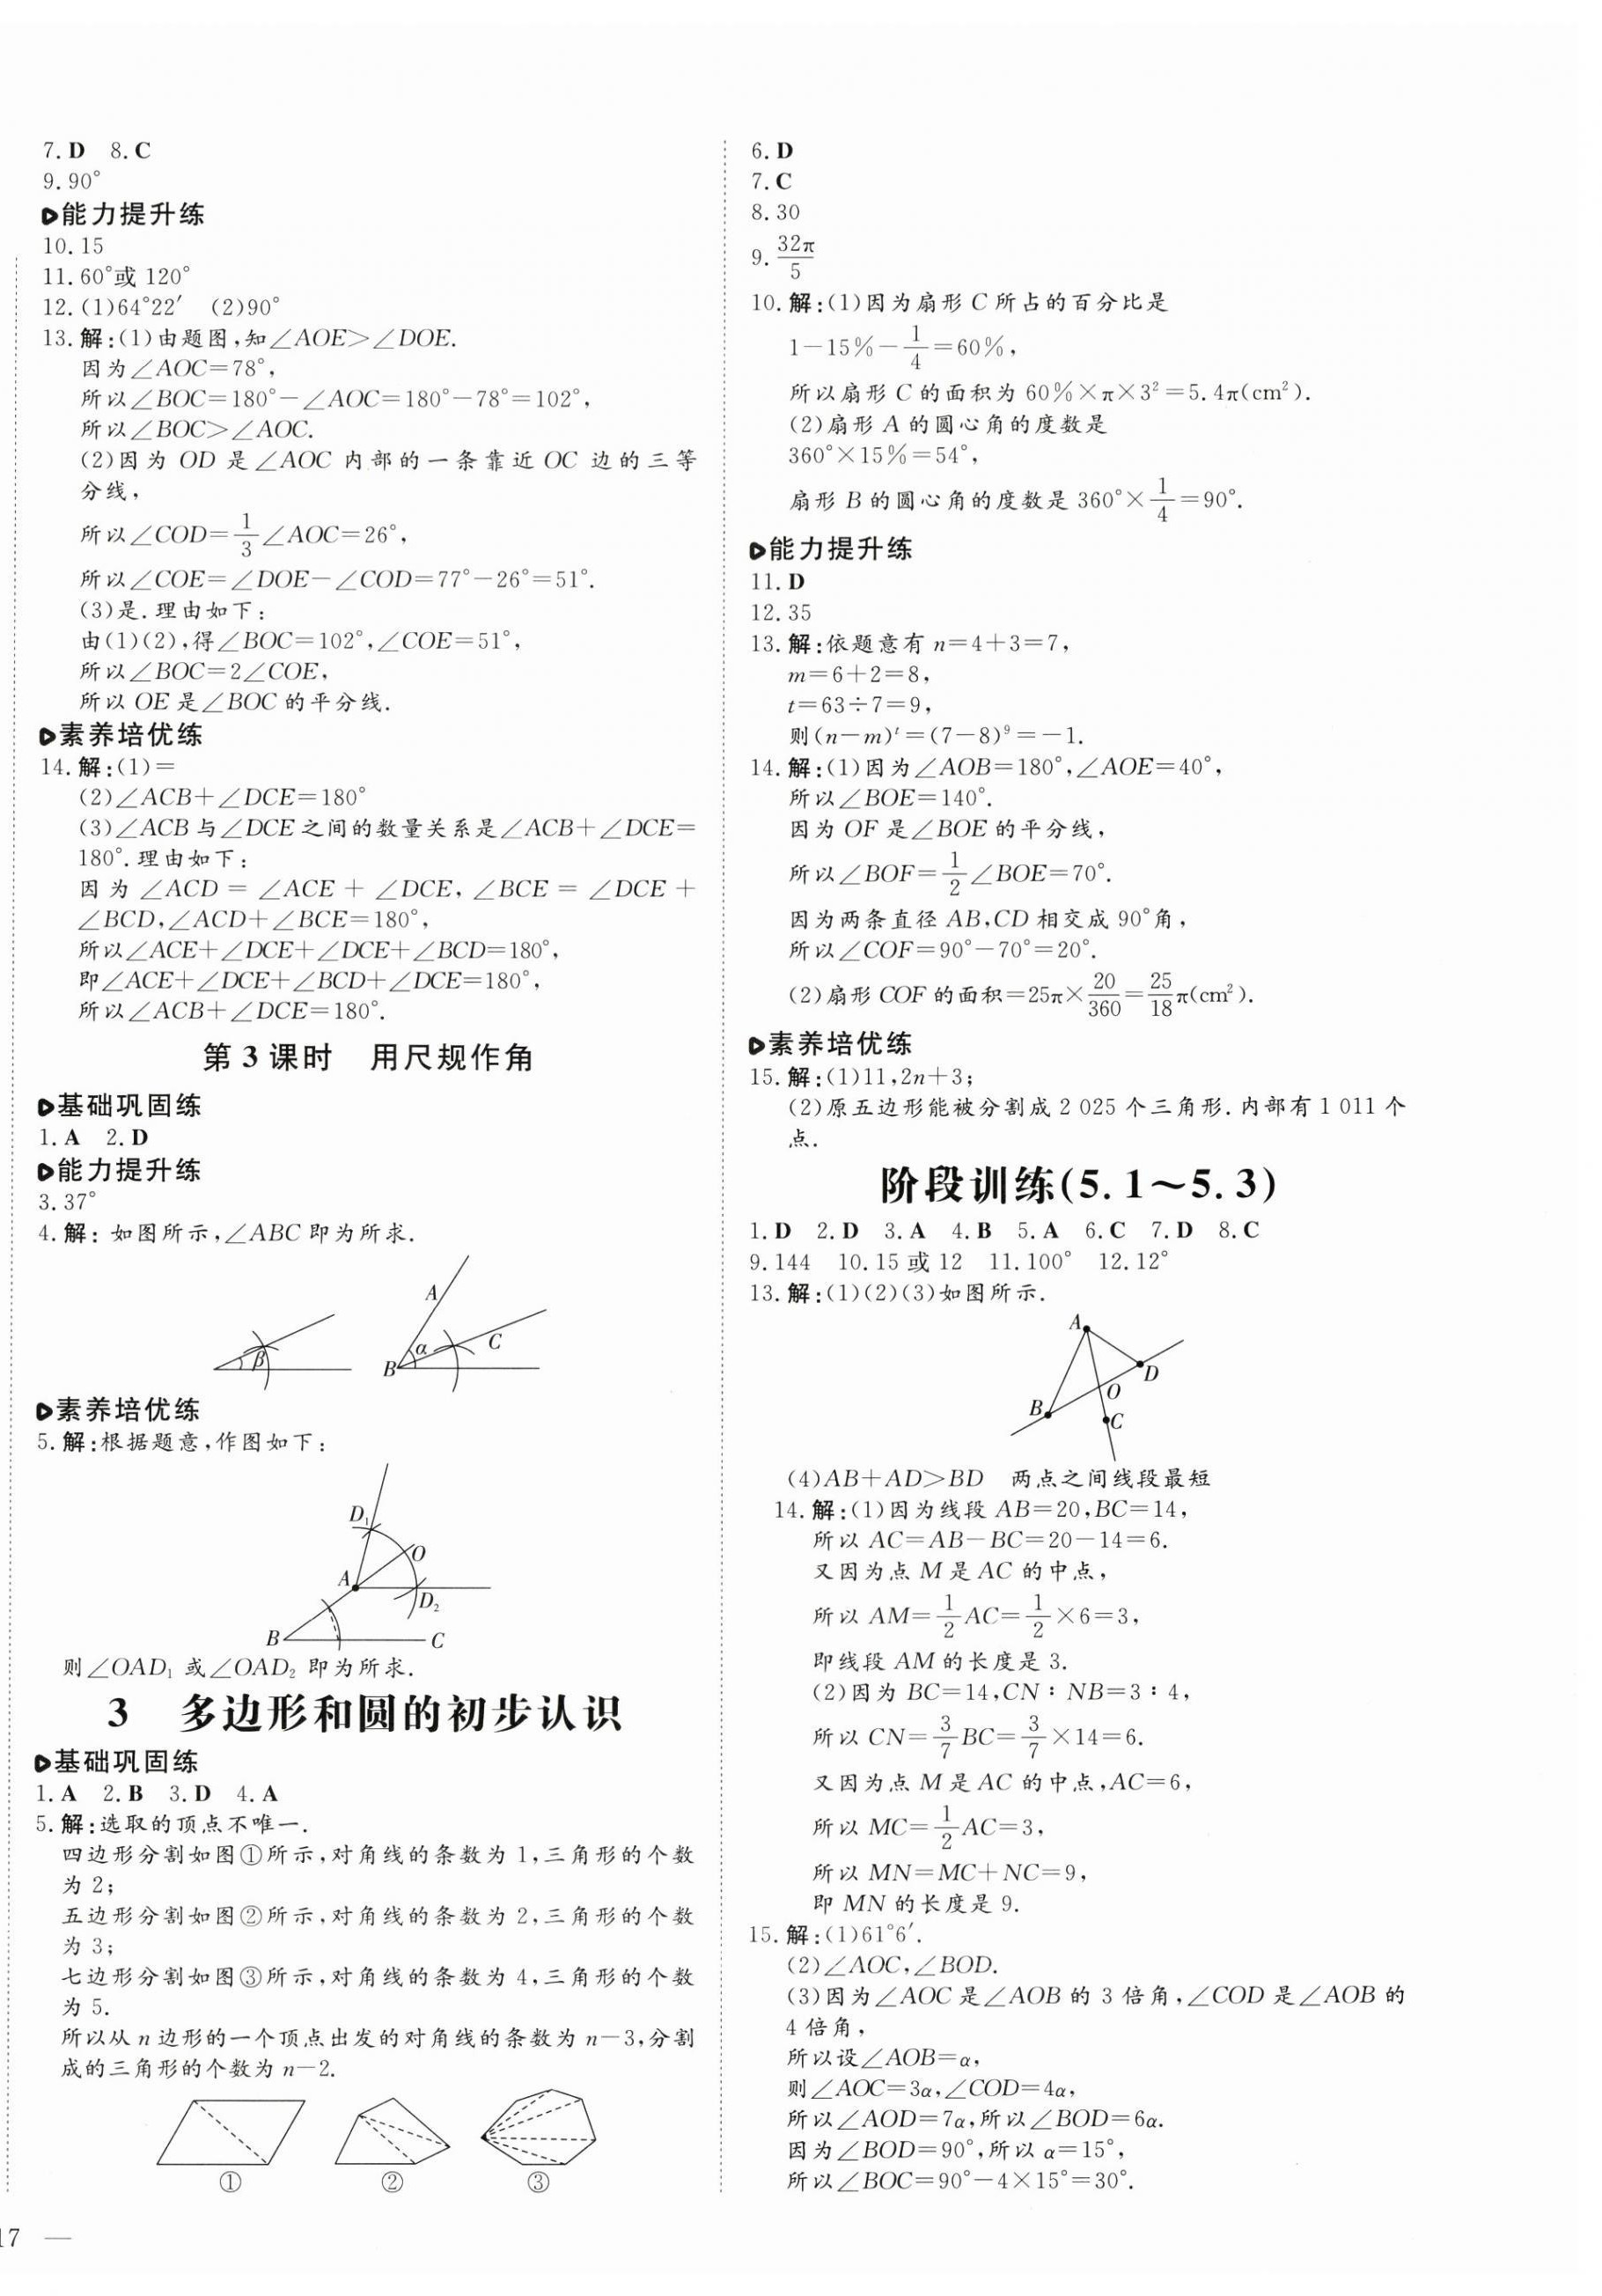 7. D 8. C
9. 90°
能力提升练
10. 15
11. 60°或 120°
12. (1)64°22′ (2)90°
13. 解:(1)由题图,知∠AOE>∠DOE.
因为∠AOC=78°,
所以∠BOC=180°-∠AOC=180°-78°=102°,
所以∠BOC>∠AOC.
(2)因为 OD 是∠AOC 内部的一条靠近 OC 边的三等
分线,
所以∠COD=1/3∠AOC=26°,
所以∠COE=∠DOE-∠COD=77°-26°=51°.
(3)是.理由如下:
由(1)(2),得∠BOC=102°,∠COE=51°,
所以∠BOC=2∠COE,
所以 OE 是∠BOC 的平分线.
素养培优练
14. 解:(1)=
(2)∠ACB+∠DCE=180°
(3)∠ACB 与∠DCE 之间的数量关系是∠ACB+∠DCE=
180°.理由如下:
因为 ∠ACD = ∠ACE + ∠DCE, ∠BCE = ∠DCE +
∠BCD,∠ACD+∠BCE=180°,
所以∠ACE+∠DCE+∠DCE+∠BCD=180°,
即∠ACE+∠DCE+∠BCD+∠DCE=180°,
所以∠ACB+∠DCE=180°.
第 3 课时 用尺规作角
基础巩固练
1. A 2. D
能力提升练
3. 37°
4. 解: 如图所示,∠ABC 即为所求.
β
A
B
α
C
素养培优练
5. 解:根据题意,作图如下:
D₁
O
A
D₂
B
C
则∠OAD₁ 或∠OAD₂ 即为所求.
3 多边形和圆的初步认识
基础巩固练
1. A 2. B 3. D 4. A
5. 解:选取的顶点不唯一.
四边形分割如图①所示,对角线的条数为 1,三角形的个数
为 2;
五边形分割如图②所示,对角线的条数为 2,三角形的个数
为 3;
七边形分割如图③所示,对角线的条数为 4,三角形的个数
为 5.
所以从 n 边形的一个顶点出发的对角线的条数为 n-3,分割
成的三角形的个数为 n-2.
① ② ③
17 —
6. D
7. C
8. 30
9. 32π/5
10. 解:(1)因为扇形 C 所占的百分比是
1-15%-1/4=60%,
所以扇形 C 的面积为 60%×π×3²=5.4π(cm²).
(2)扇形 A 的圆心角的度数是
360°×15%=54°,
扇形 B 的圆心角的度数是 360°×1/4=90°.
能力提升练
11. D
12. 35
13. 解:依题意有 n=4+3=7,
m=6+2=8,
t=63÷7=9,
则(n-m)ᵗ=(7-8)⁹=-1.
14. 解:(1)因为∠AOB=180°,∠AOE=40°,
所以∠BOE=140°.
因为 OF 是∠BOE 的平分线,
所以∠BOF=1/2∠BOE=70°.
因为两条直径 AB,CD 相交成 90°角,
所以∠COF=90°-70°=20°.
(2)扇形 COF 的面积=25π×20/360=25/18π(cm²).
素养培优练
15. 解:(1)11,2n+3;
(2)原五边形能被分割成 2 025 个三角形.内部有 1 011 个
点.
阶段训练(5.1~5.3)
1. D 2. D 3. A 4. B 5. A 6. C 7. D 8. C
9. 144 10. 15 或 12 11. 100° 12. 12°
13. 解:(1)(2)(3)如图所示.
A
D
O
B
C
(4)AB+AD>BD 两点之间线段最短
14. 解:(1)因为线段 AB=20,BC=14,
所以 AC=AB-BC=20-14=6.
又因为点 M 是 AC 的中点,
所以 AM=1/2AC=1/2×6=3,
即线段 AM 的长度是 3.
(2)因为 BC=14,CN∶NB=3∶4,
所以 CN=3/7BC=3/7×14=6.
又因为点 M 是 AC 的中点,AC=6,
所以 MC=1/2AC=3,
所以 MN=MC+NC=9,
即 MN 的长度是 9.
15. 解:(1)61°6′.
(2)∠AOC,∠BOD.
(3)因为∠AOC 是∠AOB 的 3 倍角,∠COD 是∠AOB 的
4 倍角,
所以设∠AOB=α,
则∠AOC=3α,∠COD=4α,
所以∠AOD=7α,所以∠BOD=6α.
因为∠BOD=90°,所以 α=15°,
所以∠BOC=90°-4×15°=30°.